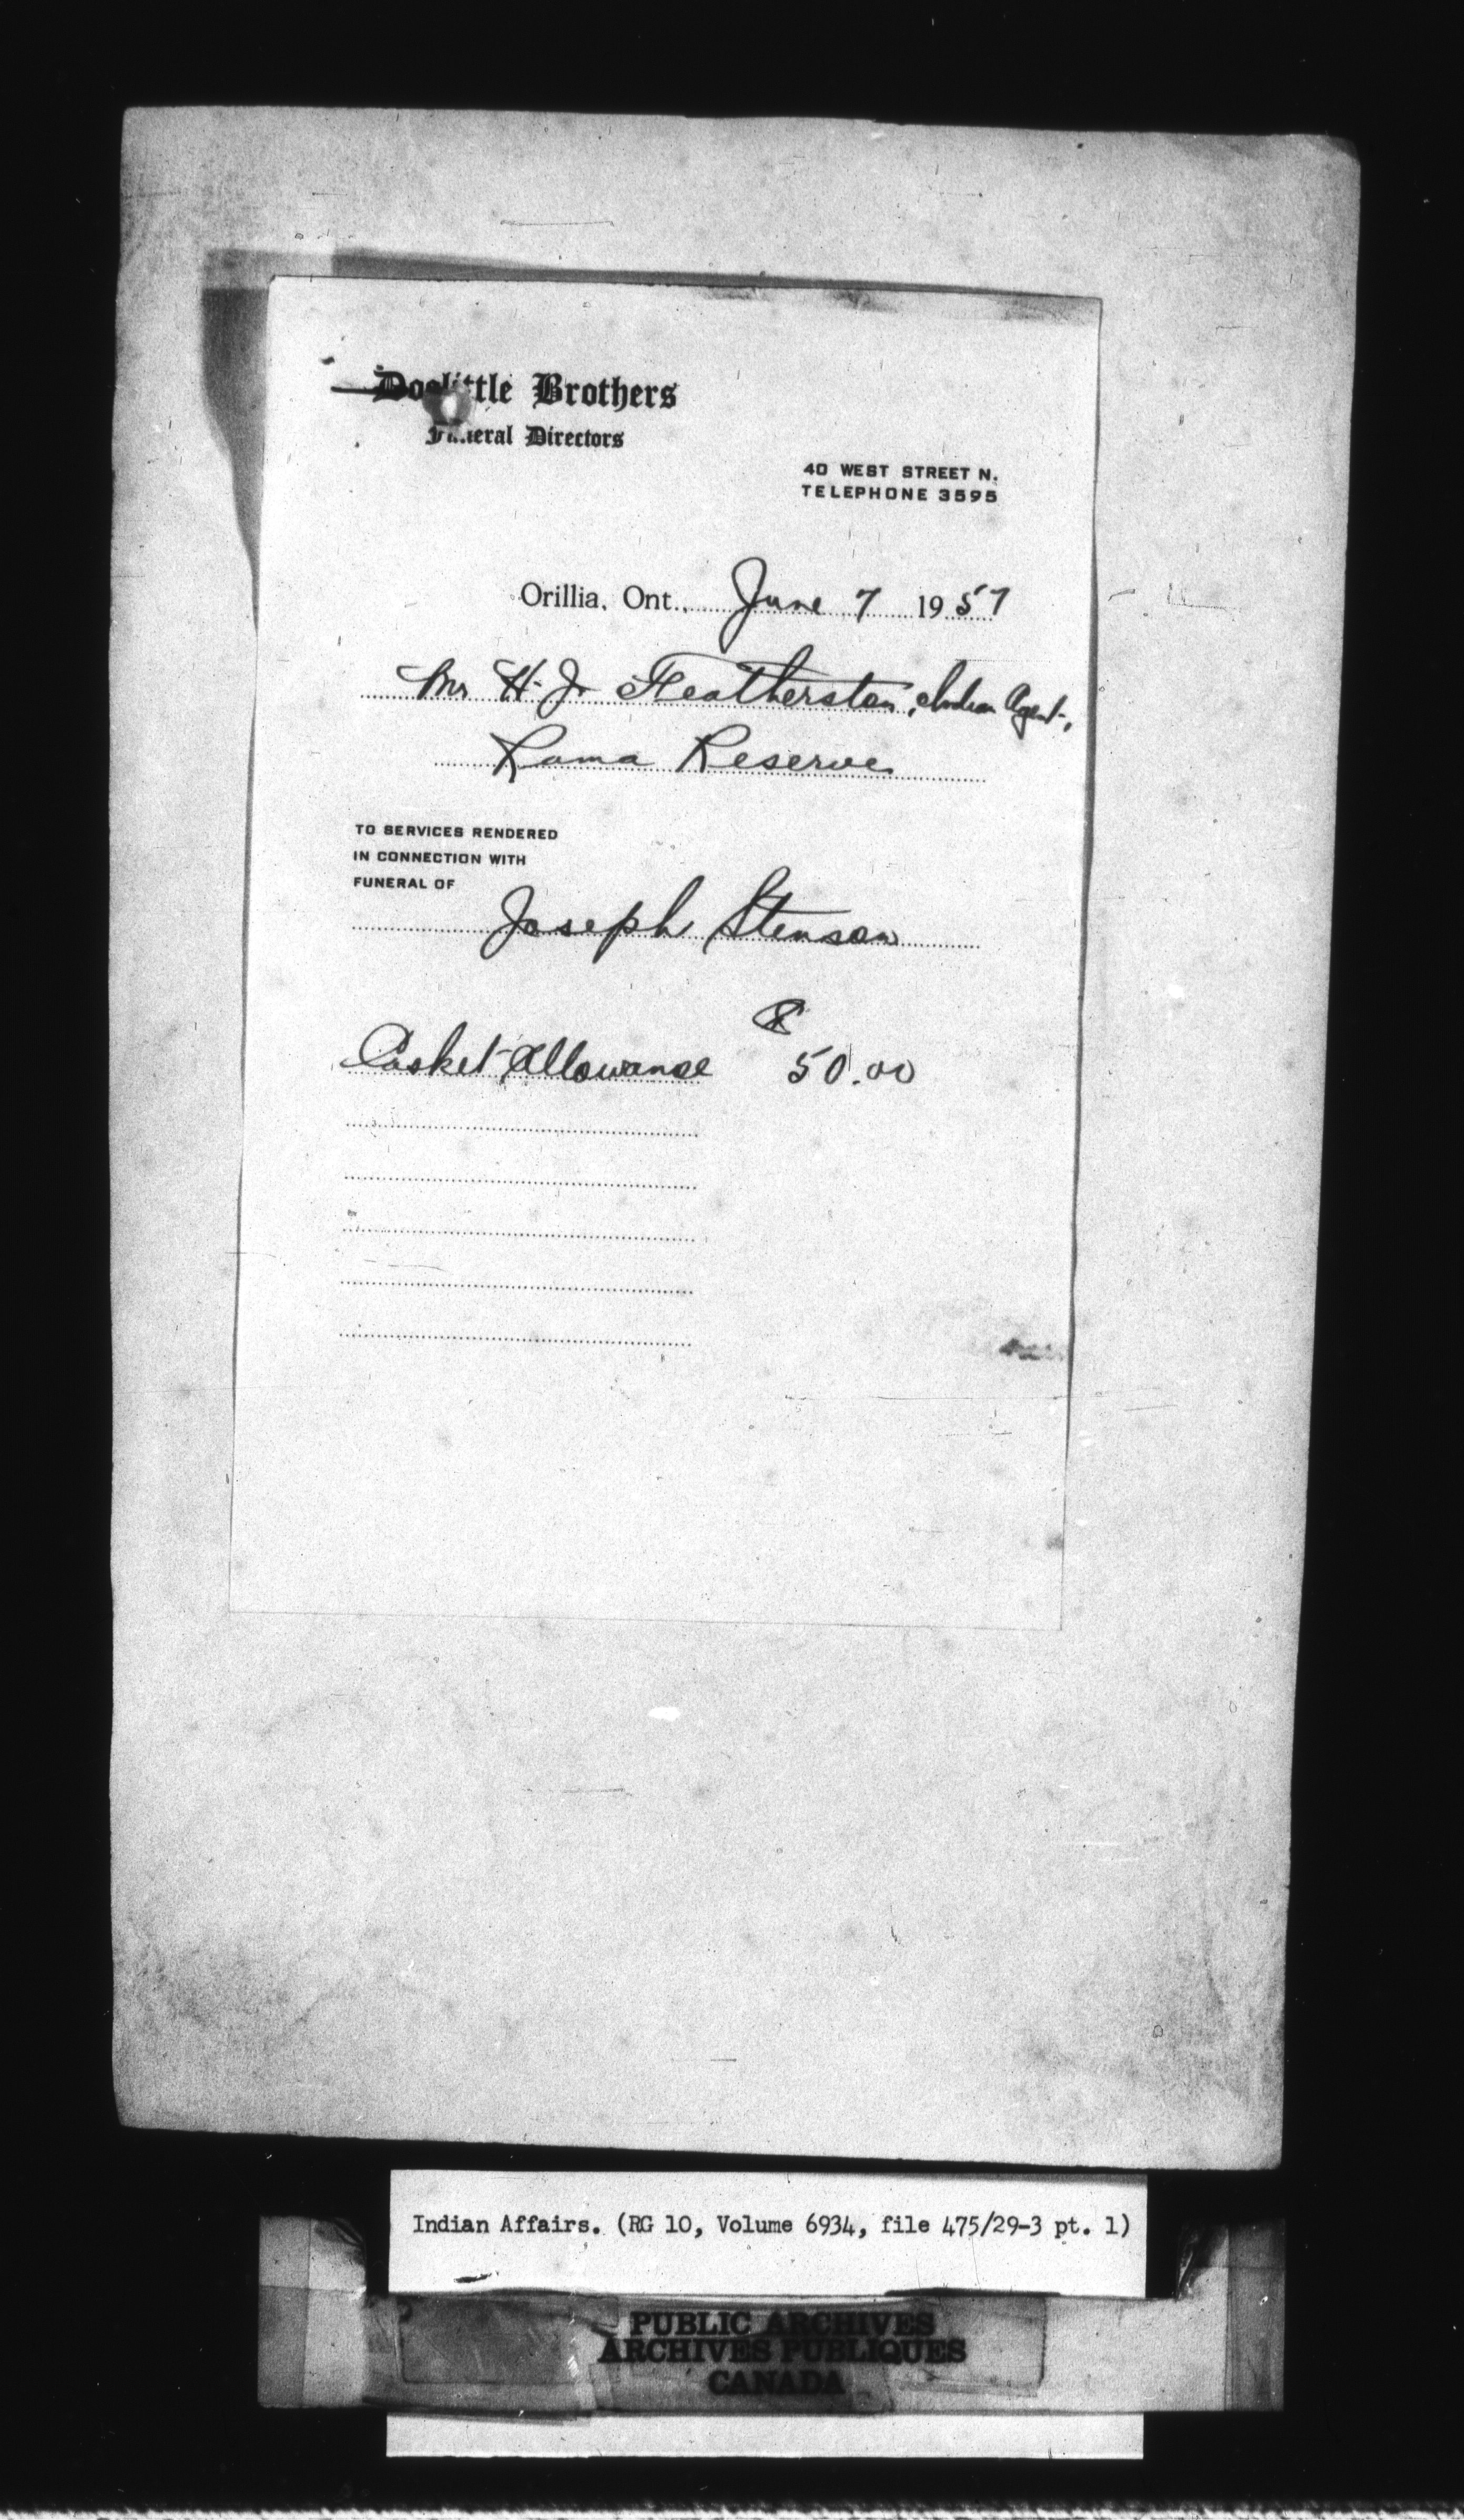 Doolittle Brothers
Funeral Directors
40 WEST STREET N.
TELEPHONE 3595
Orillia, Ont., June 7 1957
Mr H. J. Featherston, Indian Agent,
Rama Reserve
TO SERVICES RENDERED
IN CONNECTION WITH
FUNERAL OF
Joseph Stenson
$
Casket Allowance 50.00
Indian Affairs. (RG 10, Volume 6934, file 475/29-3 pt. 1)
PUBLIC ARCHIVES
ARCHIVES PUBLIQUES
CANADA